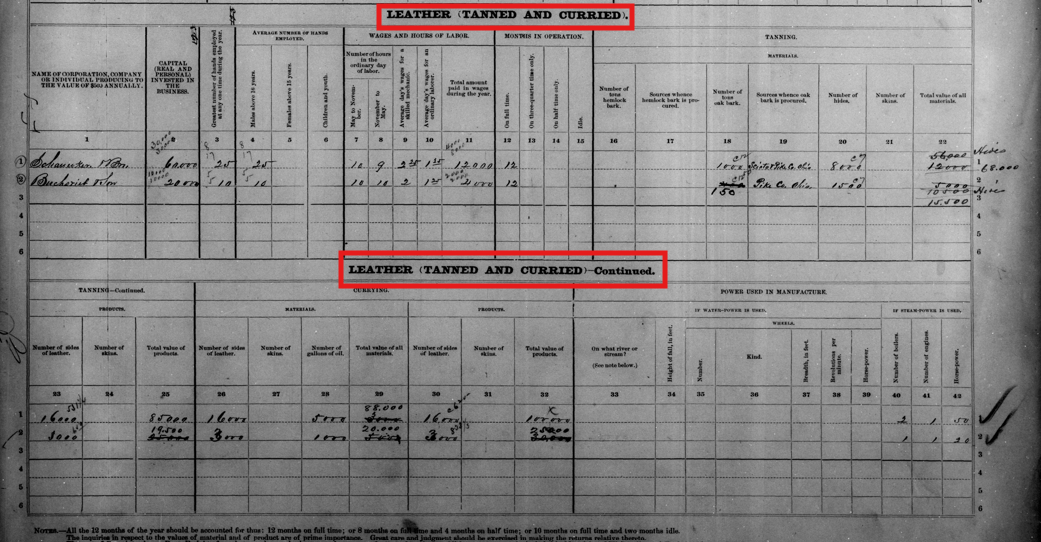 LEATHER (TANNED AND CURRIED).
NAME OF CORPORATION, COMPANY OR INDIVIDUAL PRODUCING TO THE VALUE OF $500 ANNUALLY.
CAPITAL (REAL AND PERSONAL) INVESTED IN THE BUSINESS.
Greatest number of hands employed at any one time during the year.
AVERAGE NUMBER OF HANDS EMPLOYED.
Males above 16 years.
Females above 15 years.
Children and youth.
WAGES AND HOURS OF LABOR.
Number of hours in the ordinary day of labor.
May to November.
November to May.
Average day's wages for a skilled mechanic.
Average day's wages for an ordinary laborer.
Total amount paid in wages during the year.
MONTHS IN OPERATION.
On full time.
On three-quarter time only.
On half time only.
Idle.
TANNING.
MATERIALS.
Number of tons hemlock bark.
Sources whence hemlock bark is procured.
Number of tons oak bark.
Sources whence oak bark is procured.
Number of hides.
Number of skins.
Total value of all materials.
1 2 3 4 5 6 7 8 9 10 11 12 13 14 15 16 17 18 19 20 21 22
1 60,000 25 25 10 9 12000 12 1000 8000 12000 68.000
2 20,000 10 10 10 10 2 4000 12 150 Pike Co. Ohio 1500 10500
3 15.500
4
5
6
LEATHER (TANNED AND CURRIED)—Continued.
TANNING—Continued.
PRODUCTS.
Number of sides of leather.
Number of skins.
Total value of products.
CURRYING.
MATERIALS.
Number of sides of leather.
Number of skins.
Number of gallons of oil.
Total value of all materials.
PRODUCTS.
Number of sides of leather.
Number of skins.
Total value of products.
POWER USED IN MANUFACTURE.
IF WATER-POWER IS USED.
On what river or stream? (See note below.)
Height of fall, in feet.
WHEELS.
Number.
Kind.
Breadth, in feet.
Revolutions per minute.
Horse-power.
IF STEAM-POWER IS USED.
Number of boilers.
Number of engines.
Horse-power.
23 24 25 26 27 28 29 30 31 32 33 34 35 36 37 38 39 40 41 42
1 16000 85000 16000 5000 88.000 16000 100000 2 1 50 1
2 3000 19.500 3000 1000 20.000 3000 25000 1 1 20 2
3
4
5
6
NOTES.—All the 12 months of the year should be accounted for thus: 12 months on full time; or 8 months on full time and 4 months on half time; or 10 months on full time and two months idle.
The inquiries in respect to the value of material and of product are of prime importance. Great care and judgment should be exercised in making the returns relative thereto.